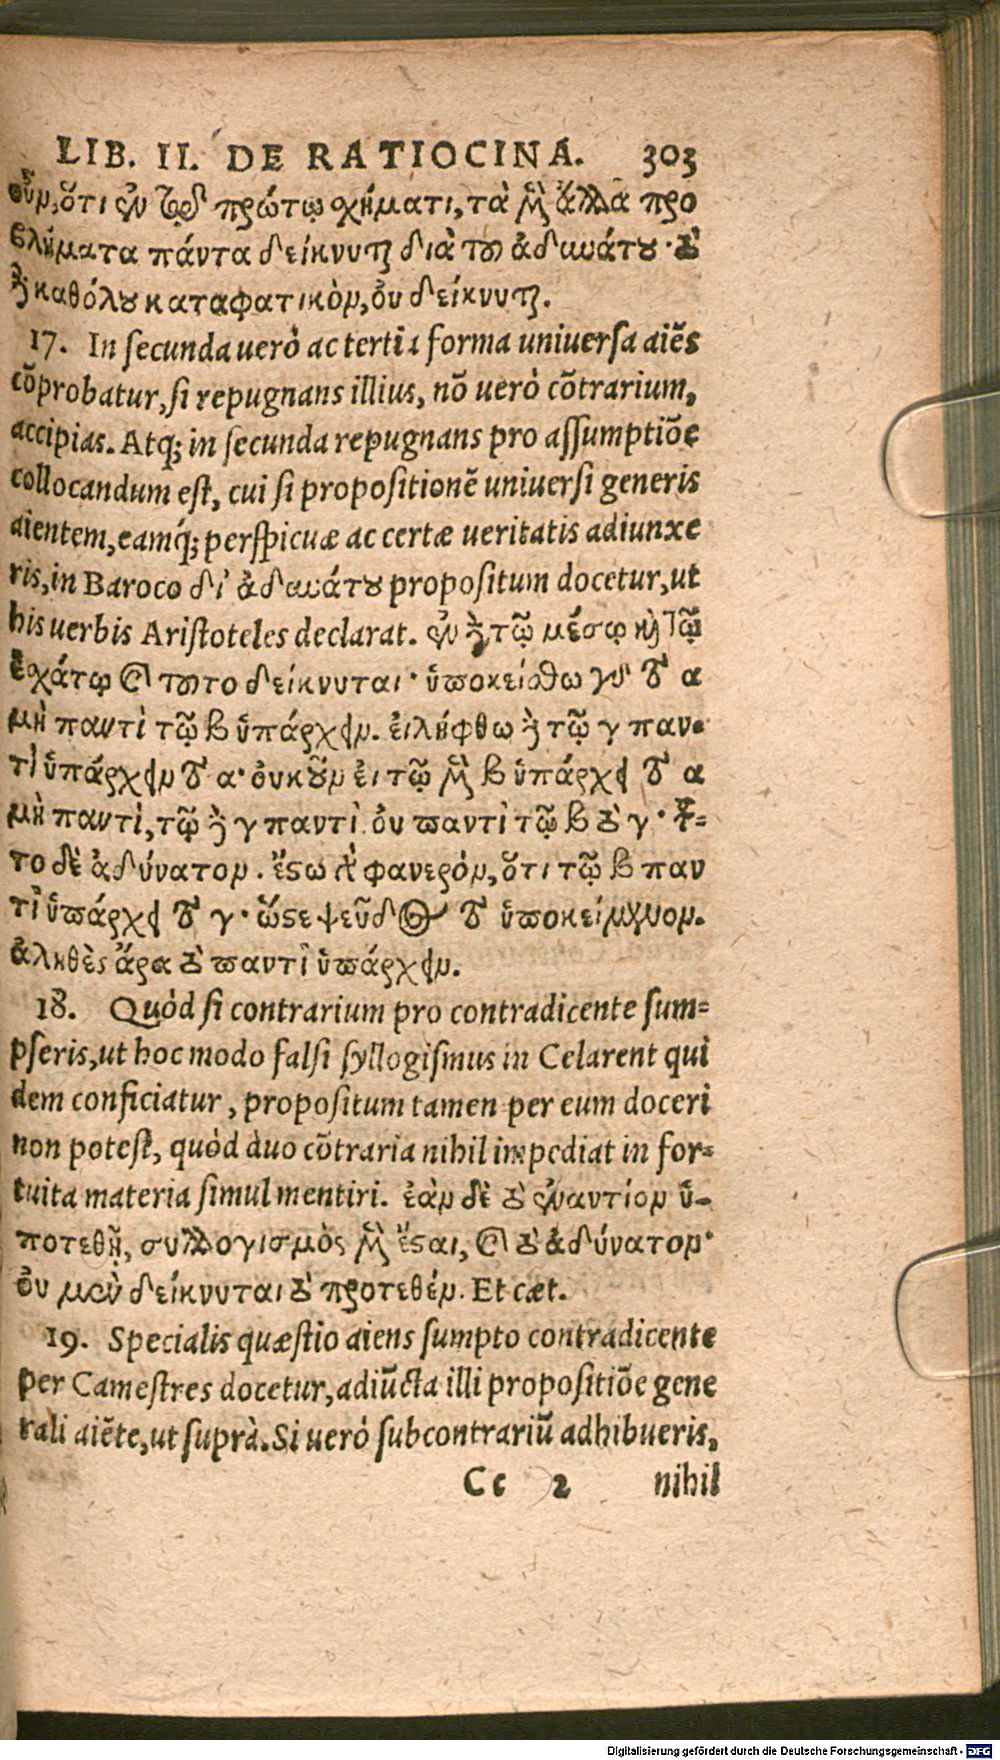 LIB. II. DE RATIOCINA. 303
οὖν, ὅτι ἐν τῷ πρώτῳ σχήματι, τὰ μὲν ἄλλα προ
βλήματα πάντα δείκνυται διὰ τοῦ ἀδυνάτου· τὸ
δὲ καθόλου καταφατικὸν, οὐ δείκνυται.
17. In secunda uerò ac tertia forma uniuersa aiēs
cōprobatur, si repugnans illius, nō uerò cōtrarium,
accipias. Atq; in secunda repugnans pro assumptiōe
collocandum est, cui si propositionē uniuersi generis
aientem, eamq́; perspicuæ ac certæ ueritatis adiunxe
ris, in Baroco δι' ἀδυνάτου propositum docetur, ut
his uerbis Aristoteles declarat. ἐν δὲ τῷ μέσῳ καὶ τῷ
ἐχάτῳ καὶ τοῦτο δείκνυται· ὑποκείσθω γὰρ τὸ α
μὴ παντὶ τῷ β ὑπάρχειν. εἰλήφθω δὲ τῷ γ παν-
τὶ ὑπάρχειν τὸ α· οὐκοῦν εἰ τῷ μὲν β ὑπάρχει τὸ α
μὴ παντὶ, τῷ δὲ γ παντὶ. οὐ παντὶ τῷ β τὸ γ· τοῦ-
το δὲ ἀδύνατον. ἔστω γὰρ φανερόν, ὅτι τῷ β παν
τὶ ὑπάρχει τὸ γ· ὥστε ψεῦδος τὸ ὑποκείμενον.
ἀληθὲς ἄρα τὸ παντὶ ὑπάρχειν.
18. Quòd si contrarium pro contradicente sum-
pseris, ut hoc modo falsi syllogismus in Celarent qui
dem conficiatur, propositum tamen per eum doceri
non potest, quòd duo cōtraria nihil impediat in for-
tuita materia simul mentiri. ἐὰν δὲ τὸ ἐναντίον ὑ-
ποτεθῇ, συλλογισμὸς μὲν ἔσται, καὶ τὸ ἀδύνατον·
οὐ μὴν δείκνυται τὸ προτεθέν. Et cæt.
19. Specialis quæstio aiens sumpto contradicente
per Camestres docetur, adiūcta illi propositiōe gene
rali aiēte, ut suprà. Si uerò subcontrariū adhibueris,
Cc 2 nihil
Digitalisierung gefördert durch die Deutsche Forschungsgemeinschaft - DFG